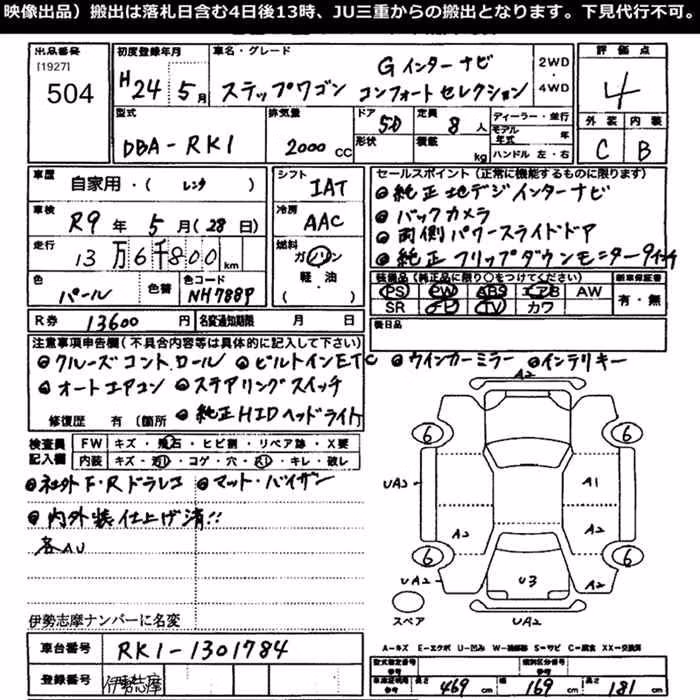 映像出品）搬出は落札日含む4日後13時、JU三重からの搬出となります。下見代行不可。
出品番号 初度登録年月 車名・グレード 評価点
[1927]
504 H24年5月 ステップワゴン Gインターナビ コンフォートセレクション 2WD・4WD 4
型式 排気量 ドア 定員 ディーラー・並行 外装 内装
DBA-RK1 2000cc 5D 8人 モデル年式 年 C B
形状 積載 kg ハンドル 左・右
車歴 自家用・( レンタ )
シフト IAT
セールスポイント（正常に機能するものに限ります）
◎純正地デジインターナビ
◎バックカメラ
◎両側パワースライドドア
◎純正フリップダウンモニター9インチ
車検 R9年5月(28日)
冷房 AAC
走行 13万6千800km
燃料 ガソリン 軽・油 ( )
色 パール 色替 色コード NH788P
装備品（純正品に限り○をつけてください） 新車保証書
PS PW ABS エアB AW 有・無
SR ナビ TV カワ
R券 13600円 名変通知期限 月 日
後日品
注意事項申告欄（不具合内容等は具体的に記入して下さい）
◎クルーズコントロール ◎ビルトインETC ◎ウインカーミラー ◎インテリキー
◎オートエアコン ◎ステアリングスイッチ
修復歴 有（箇所 ◎純正HIDヘッドライト
検査員記入欄 FW キズ・飛石・ヒビ割・リペア跡・X要
内装 キズ・汚れ・コゲ・穴・スレ・キレ・破レ
◎社外F・Rドラレコ ◎マット・バイザー
◎内外装仕上げ済!!
各AU
A2
6 6
UA2 A1
A2 A2
6 6
UA2 U3 A2
スペア UA2
伊勢志摩ナンバーに名変
A=キズ E=エクボ U=凹み W=補修跡 S=サビ C=腐食 XX=交換済
車台番号 RK1-1301784
型式指定番号 類別区分番号
登録番号 伊勢志摩
長さ 469cm 幅 169cm 高さ 181cm